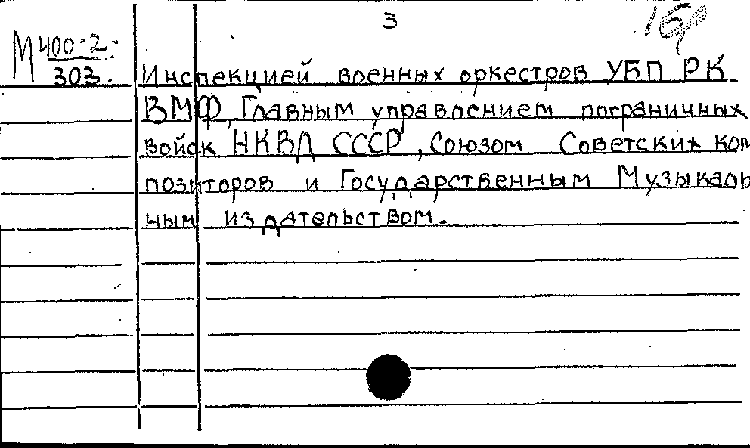 3
М400-2-
303.
Инспекцией военных оркестров УБП РК
ВМФ, Главным управлением пограничных
войск НКВД СССР, Союзом Советских ком
позиторов и Государственным Музыкаль
ным издательством.